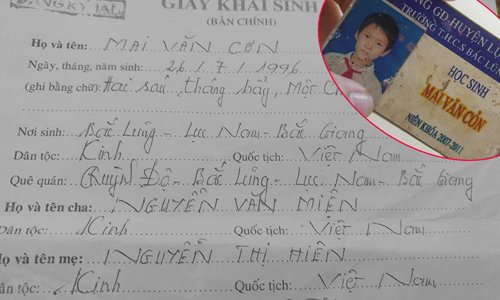 ĐĂNG KÝ LẠI
GIẤY KHAI SINH
(BẢN CHÍNH)
Họ và tên: MAI VĂN CƠN
Ngày, tháng, năm sinh: 26 / 7 / 1996
(ghi bằng chữ): Hai sáu, tháng bảy, Một
Nơi sinh: Bắc Lũng - Lục Nam - Bắc Giang
Dân tộc: Kinh Quốc tịch: Việt Nam
Quê quán: Quỳnh Độ - Bắc Lũng - Lục Nam - Bắc Giang
Họ và tên cha: NGUYỄN VĂN MIÊN
Dân tộc: Kinh Quốc tịch: Việt Nam
Họ và tên mẹ: NGUYỄN THỊ HIÊN
Dân tộc: Kinh Quốc tịch: Việt Nam
NG GD HUYỆN L
TRƯỜNG T.H.C.S BẮC LŨ
HỌC SINH
MAI VĂN CÓN
NIÊN KHÓA 2007-2011